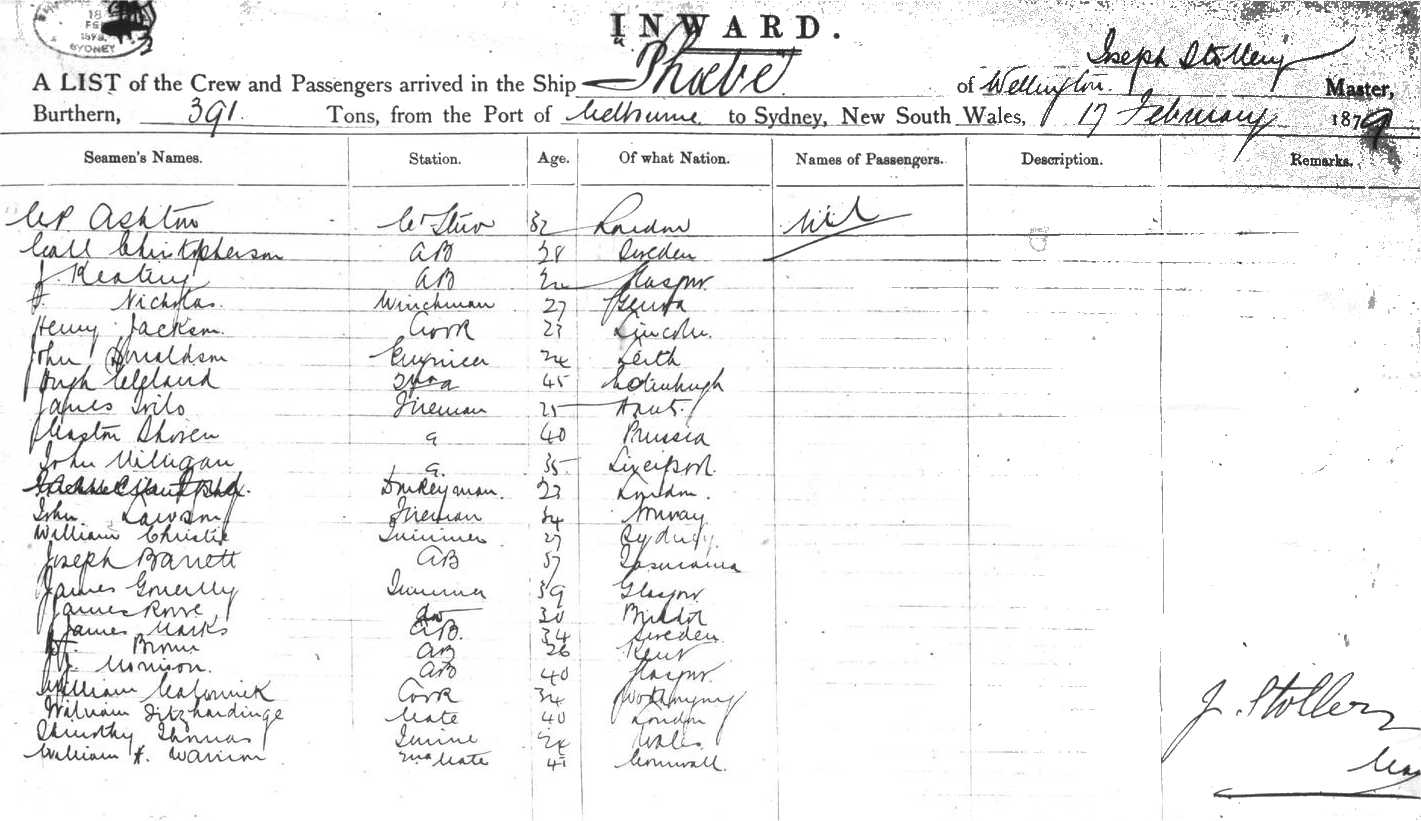 18
FE
1879
SYDNEY
INWARD.
A LIST of the Crew and Passengers arrived in the Ship Phoebe of Wellington Joseph Master,
Burthern, 391 Tons, from the Port of Melbourne to Sydney, New South Wales, 17 February 1879
Seamen's Names. Station. Age. Of what Nation. Names of Passengers. Description. Remarks.
Ashton 32 London Nil
Carl Christopherson AB 28 Sweden
J. Keating AB Glasgow
Nicholas Winchman 27 Genoa
Henry Jackson Cook 23 Lincoln
John Donaldson Engineer 24 Leith
Hugh Clelland 45 Edinburgh
James Fireman 25
40 Prussia
John Milligan 35 Liverpool
Donkeyman 23 London
John Lawson Fireman 34
William Christie Trimmer 27 Sydney
Joseph Barrett AB 37 Tasmania
James Trimmer 39 Glasgow
James Rowe 30 Bristol
James Marks AB 34 Sweden
Brown AB 26 Kent
J. Morrison AB 40 Glasgow
William Cook 34
William Fitzhardinge Mate 40 London
Timothy Thomas 24 Wales
William H. 2nd Mate 41 Cornwall
J.